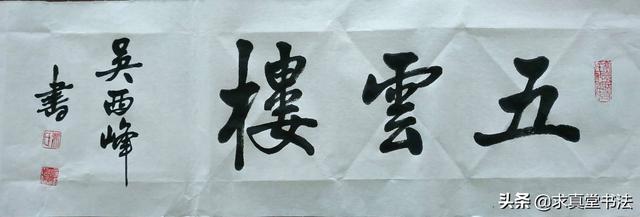 五雲樓
吳西峰
書
头条 @求真堂书法